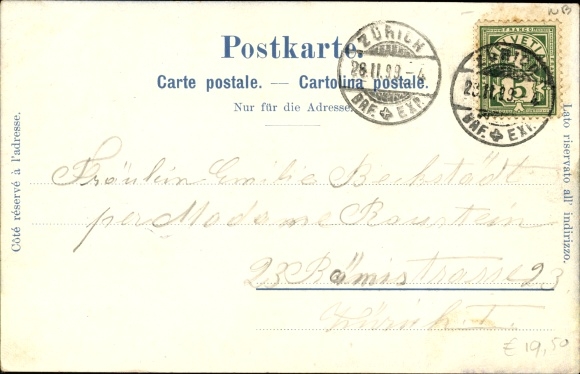 NB
Postkarte.
Carte postale. — Cartolina postale.
Nur für die Adresse.
Côté réservé à l'adresse.
Lato riservato all' indirizzo.
FRANCO
HELVETIA
5
ZÜRICH
28.II.99.-4
BRF. EXP.
ZÜRICH
28.II.99.-4
BRF. EXP.
Fräulein Emilie Bechstädt
per Madame Raustein
23 Rämistrasse 23
Zürich I.
€ 19,50